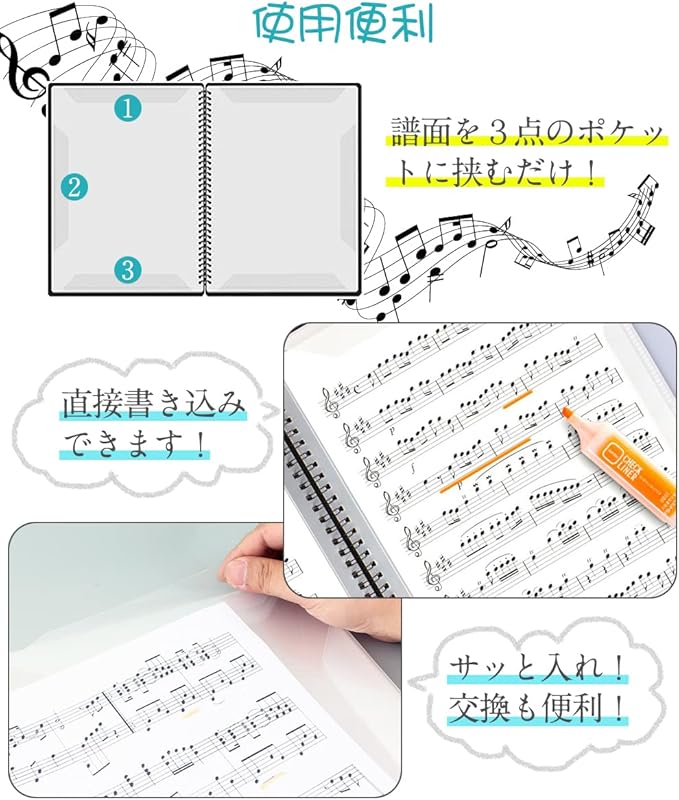 使用便利
1
譜面を3点のポケッ
トに挟むだけ！
2
3
直接書き込み
できます！
CHECK
LINER
サッと入れ！
交換も便利！